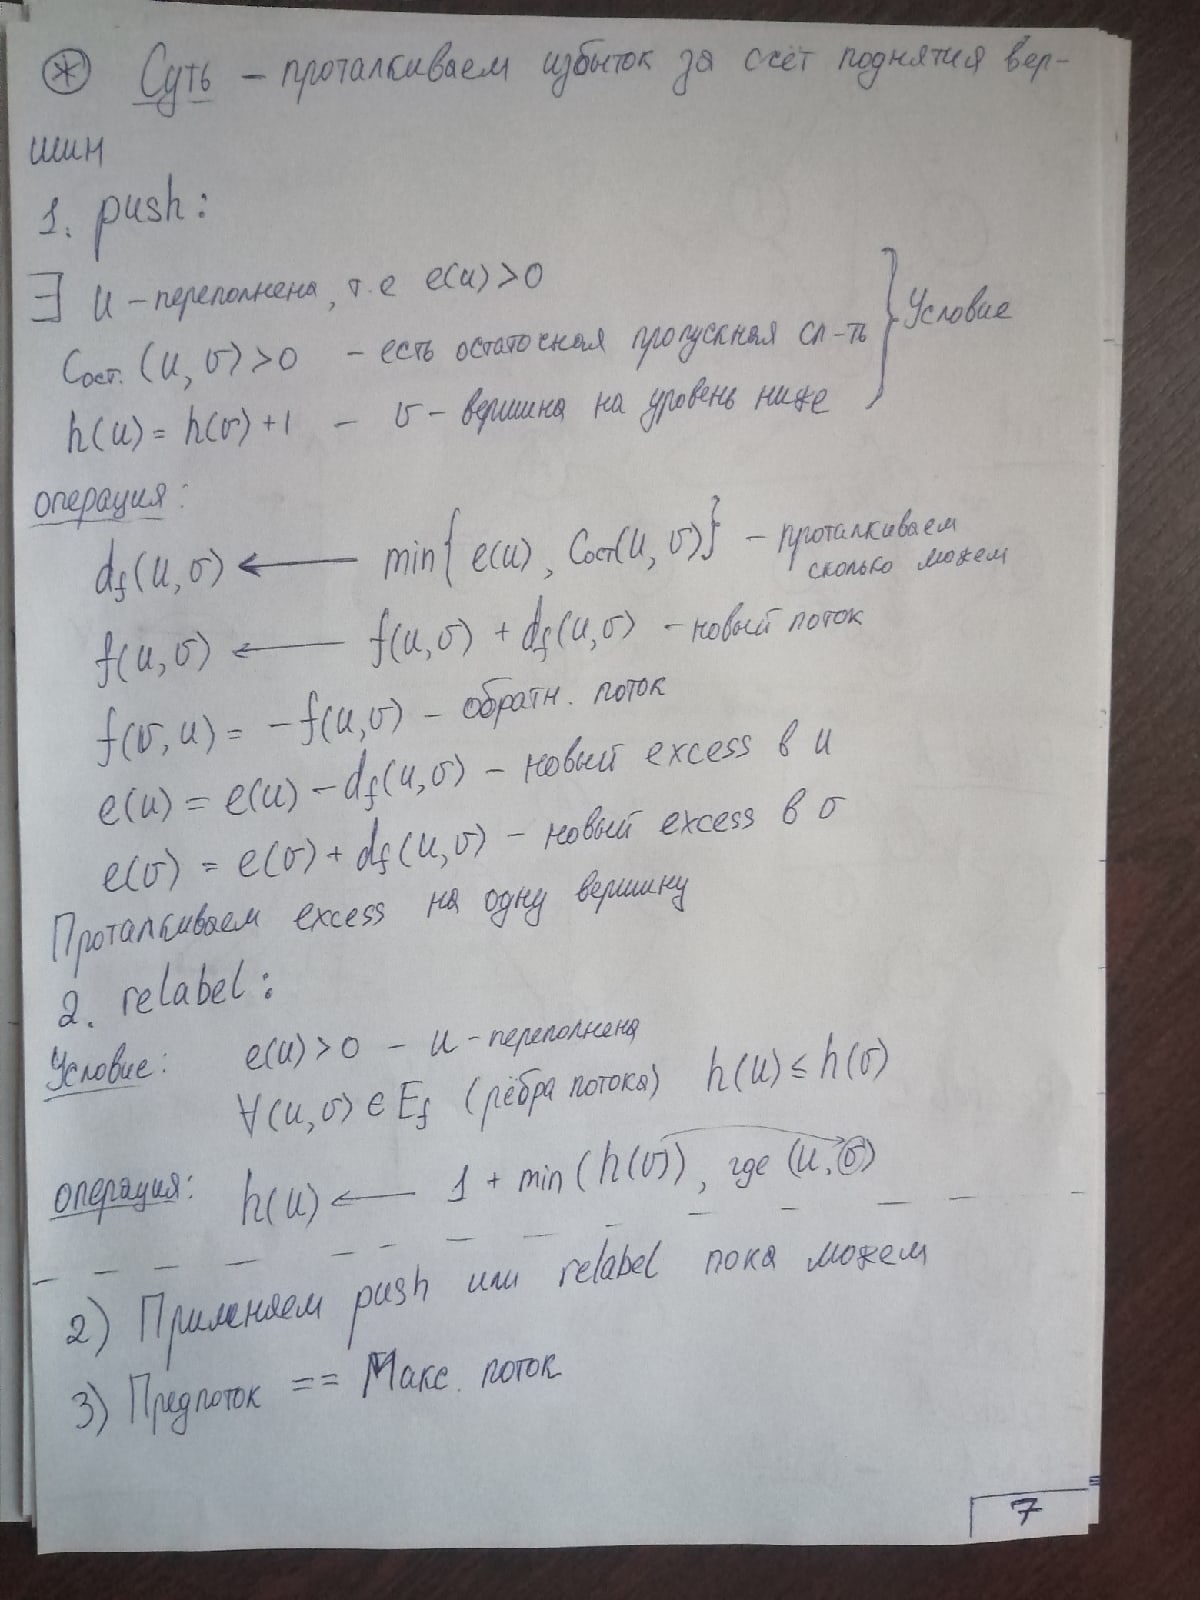 * Суть – проталкиваем избыток за счёт поднятия вер-
шин
1. push:
∃ u – переполнена, т.е e(u) > 0
Cост. (u, v) > 0 – есть остаточная пропускная сп-ть
} Условие
h(u) = h(v) + 1 – v – вершина на уровень ниже
операция:
df(u, v) ← min{ e(u), Cост(u, v)} – проталкиваем
сколько можем
f(u, v) ← f(u, v) + df(u, v) – новый поток
f(v, u) = – f(u, v) – обратн. поток
e(u) = e(u) – df(u, v) – новый excess в u
e(v) = e(v) + df(u, v) – новый excess в v
Проталкиваем excess на одну вершину
2. relabel:
Условие: e(u) > 0 – u – переполнена
∀(u, v) ∈ Ef (рёбра потока) h(u) ≤ h(v)
операция: h(u) ← 1 + min(h(v)), где (u, v)
2) Применяем push или relabel пока можем
3) Предпоток == Макс. поток
7